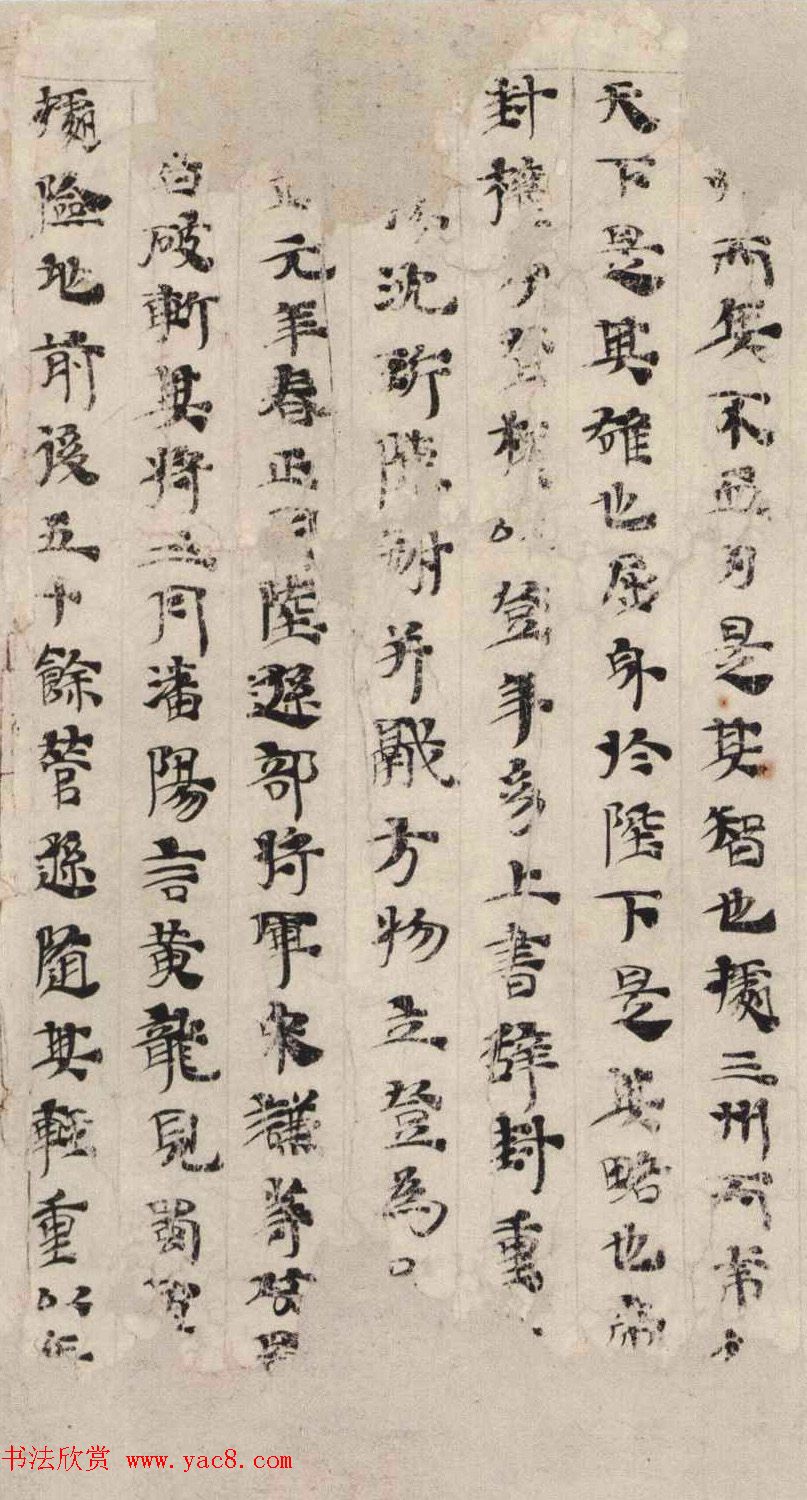 而兵不血刃是其智也據三州
天下是其雄也屈身於陛下是其略也帝
封權子登權以登年幼上書辭封重
沈珩陳謝并獻方物立登為
元年春正月陸遜部將軍宋謙等攻蜀
皆破斬其將三月潘陽言黃龍見蜀軍
據險地前後五十餘營遜隨其輕重以兵
书法欣赏 www.yac8.com